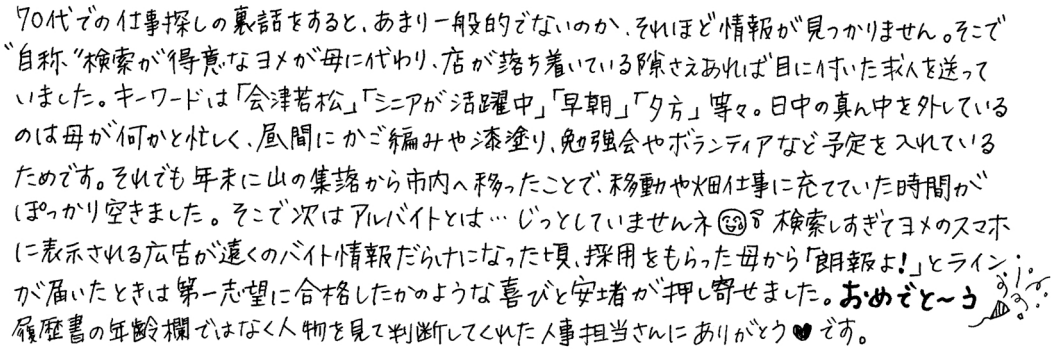 70代での仕事探しの裏話をすると、あまり一般的でないのか、それほど情報が見つかりません。そこで
"自称"検索が得意なヨメが母に代わり、店が落ち着いている隙さえあれば目に付いた求人を送って
いました。キーワードは「会津若松」「シニアが活躍中」「早朝」「夕方」等々。日中の真ん中を外している
のは母が何かと忙しく、昼間にかご編みや漆塗り、勉強会やボランティアなど予定を入れている
ためです。それでも年末に山の集落から市内へ移ったことで、移動や畑仕事に充てていた時間が
ぽっかり空きました。そこで次はアルバイトとは…じっとしていませんネ 検索しすぎてヨメのスマホ
に表示される広告が遠くのバイト情報だらけになった頃、採用をもらった母から「朗報よ！」とライン
が届いたときは第一志望に合格したかのような喜びと安堵が押し寄せました。おめでと〜う
履歴書の年齢欄ではなく人物を見て判断してくれた人事担当さんにありがとう♥です。